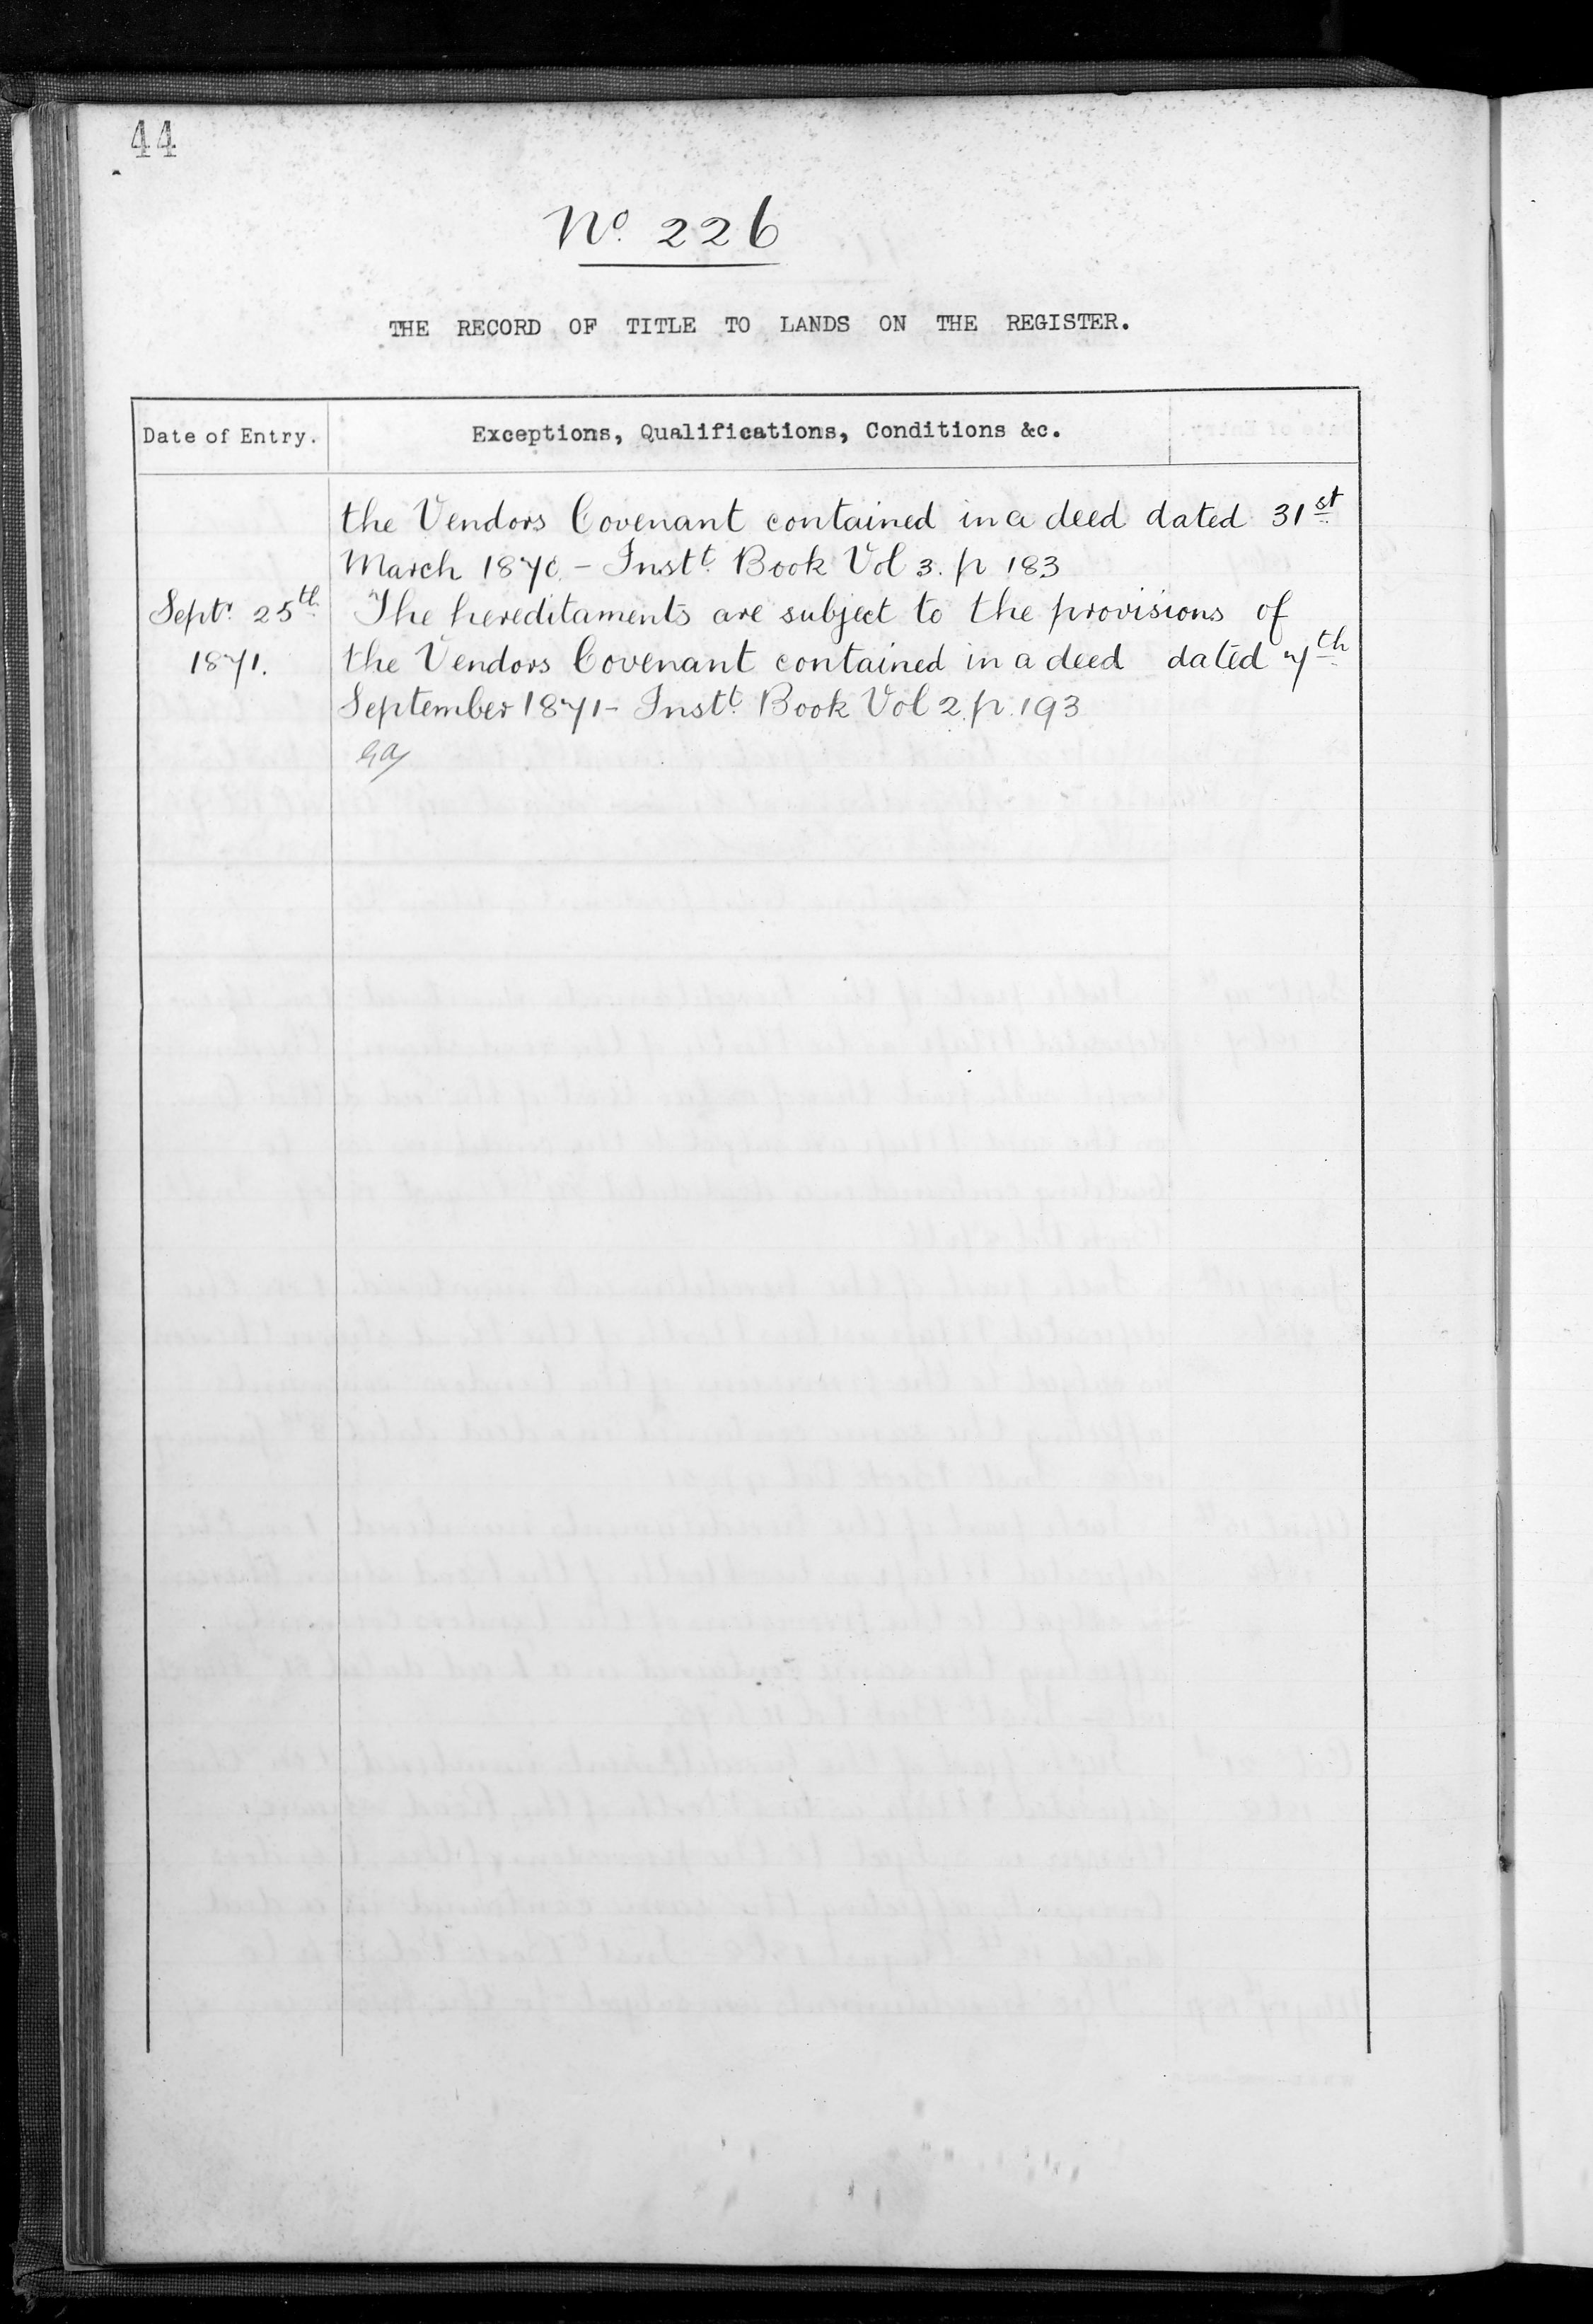 44
No. 226
THE RECORD OF TITLE TO LANDS ON THE REGISTER.
Date of Entry.
Exceptions, Qualifications, Conditions &c.
the Vendors Covenant contained in a deed dated 31st
March 1870. - Instt. Book Vol 3. p 183
Septr. 25th. The hereditaments are subject to the provisions of
1871. the Vendors Covenant contained in a deed dated 7th
September 1871 - Instt. Book Vol 2. p. 193